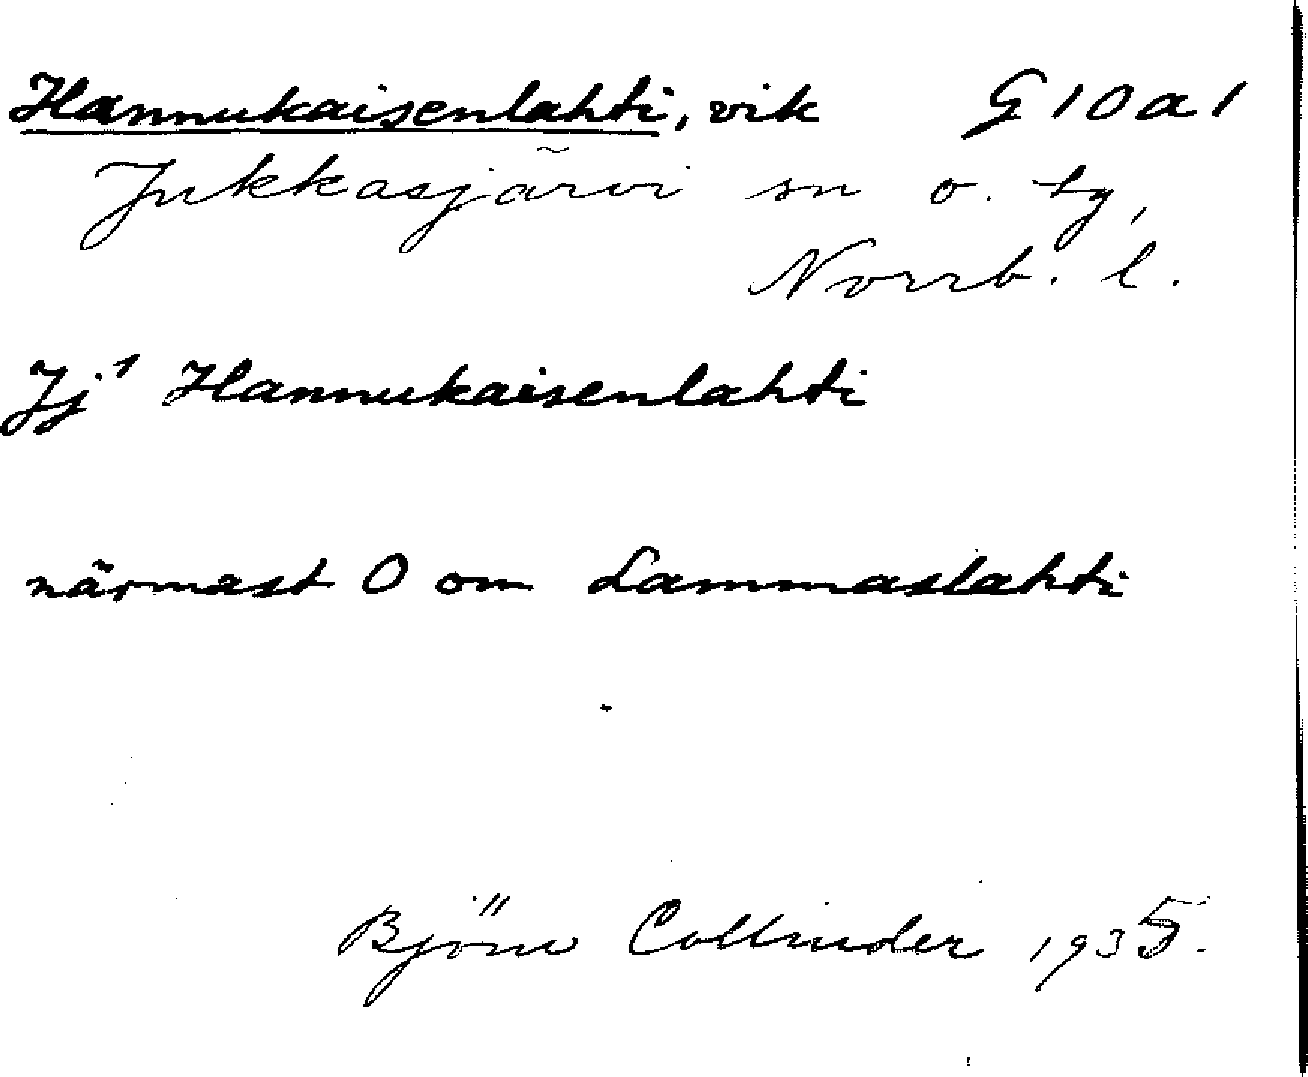 Hannukaisenlahti, vik G 10 a 1
Jukkasjärvi sn o. tg,
Norrb. l.
Jj¹ Hannukaisenlahti
närmast O om Lammaslahti
Björn Collinder 1935.